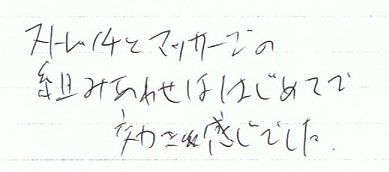 ストレッチとマッサージの
組みあわせははじめてで
効き感じでした.